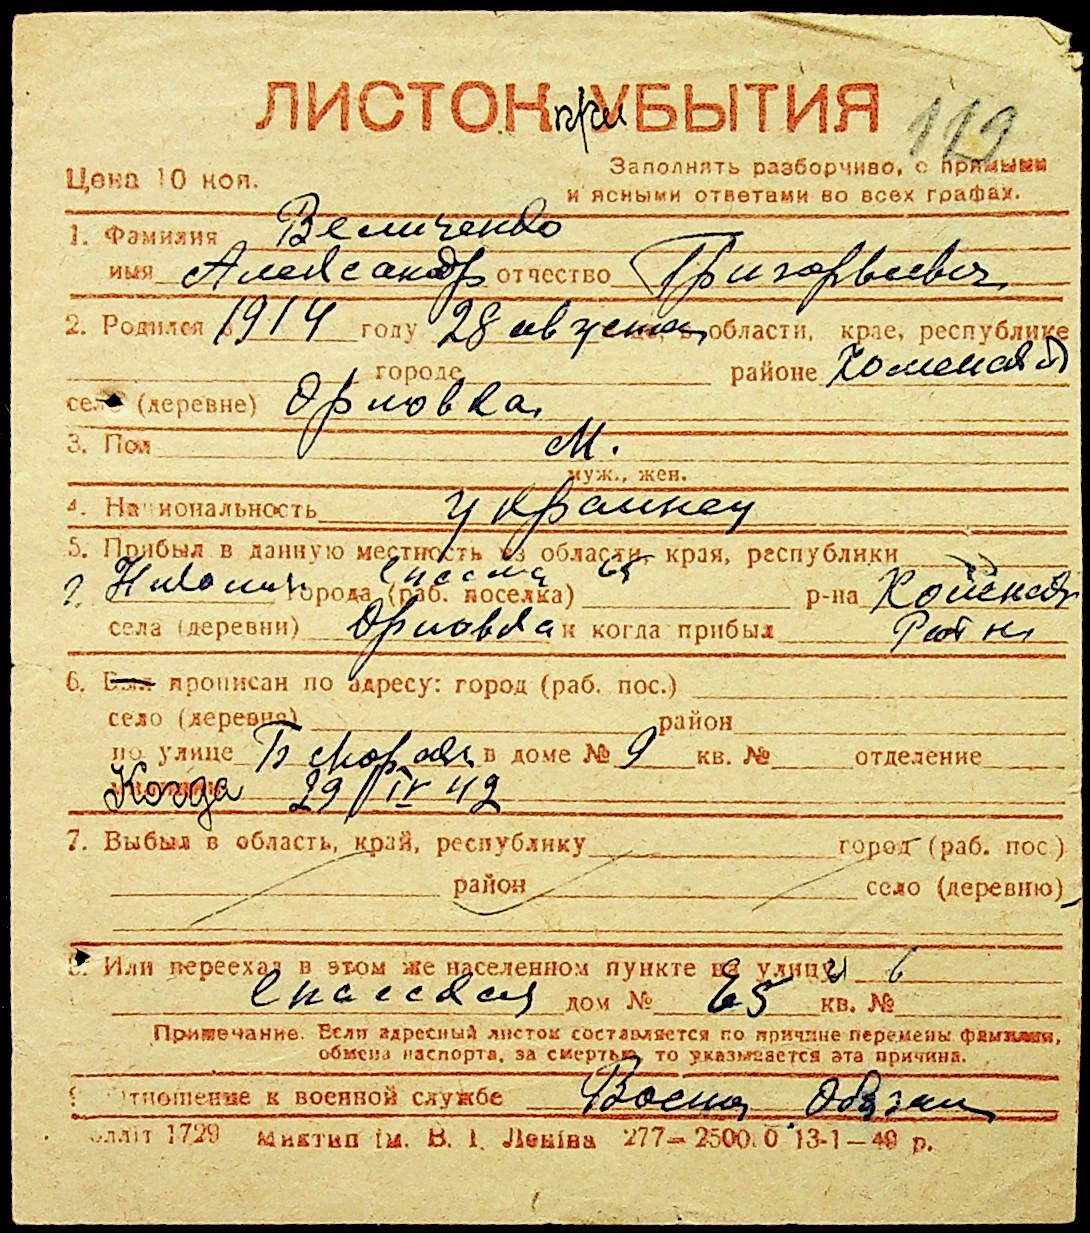 ЛИСТОК при УБЫТИЯ
119
Цена 10 коп.
Заполнять разборчиво, с прямыми
и ясными ответами во всех графах.
1. Фамилия Величенко
имя Александр отчество Григорьевич
2. Родился в 1914 году 28 августа области, крае, республике
городе районе
селе (деревне) Орловка
3. Пол М.
муж., жен.
4. Национальность украинец
5. Прибыл в данную местность из области, края, республики
Спасская 65
г. Николаев города (раб. поселка) р-на
села (деревни) Орловка и когда прибыл
6. Был прописан по адресу: город (раб. пос.)
село (деревня) район
по улице Б Морская в доме № 9 кв. № отделение
Когда 29/IV 42
7. Выбыл в область, край, республику город (раб. пос)
район село (деревню)
8. Или переехал в этом же населенном пункте на улицу
Спасская дом № 65 кв. №
Примечание. Если адресный листок составляется по причине перемены фамилии,
обмена паспорта, за смертью, то указывается эта причина.
9. Отношение к военной службе Военно обязан
1729 Миктип ім. В. І. Леніна 277—2500.0 13-1—40 р.